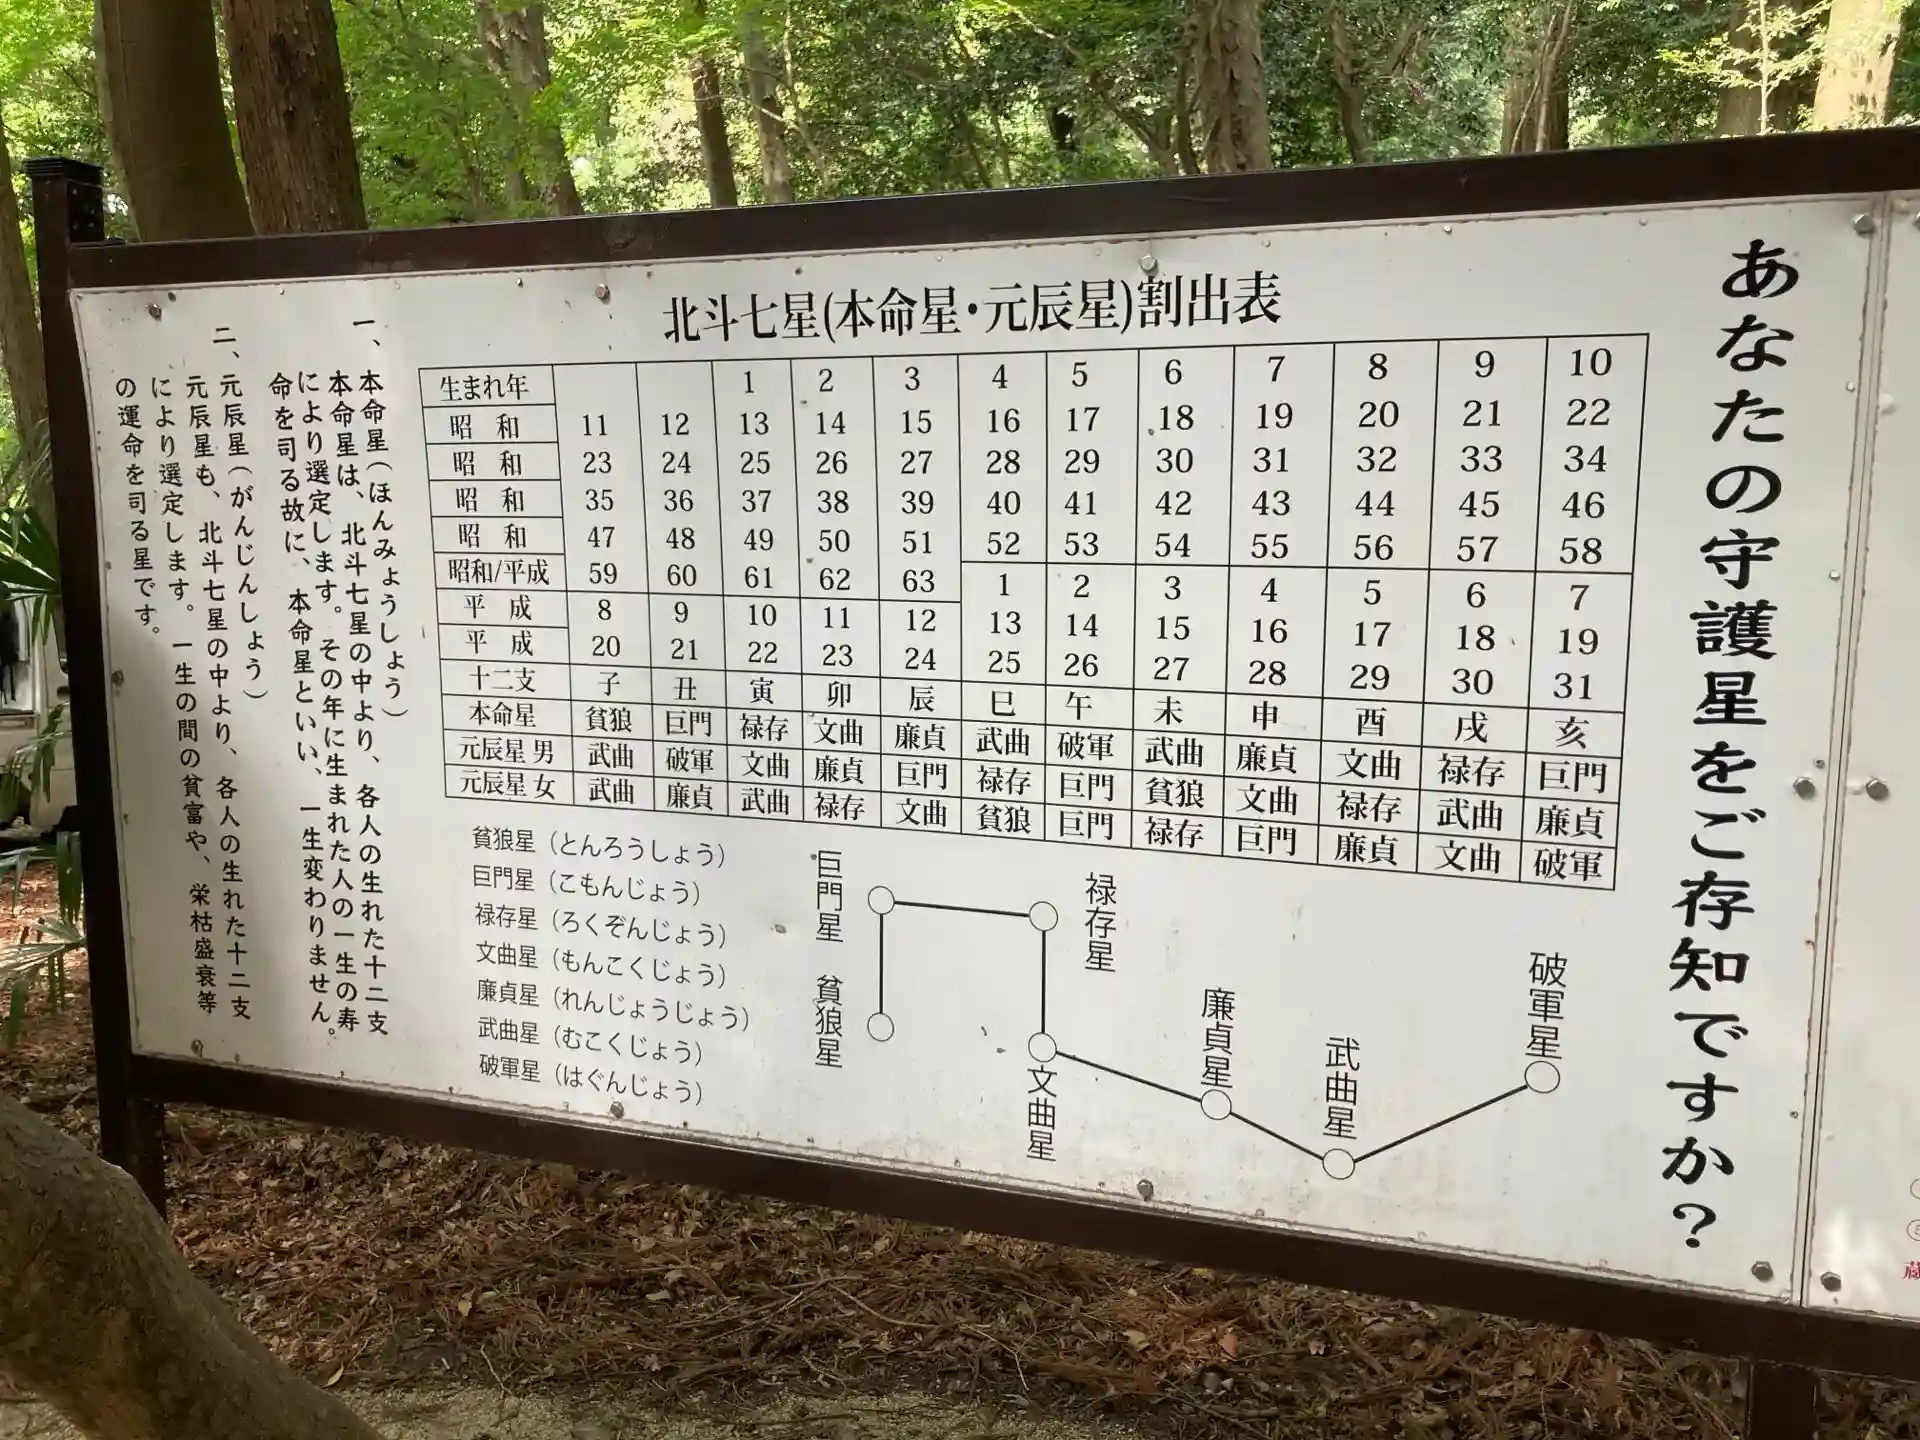 あなたの守護星をご存知ですか?
北斗七星(本命星・元辰星)割出表
生まれ年 1 2 3 4 5 6 7 8 9 10
昭和 11 12 13 14 15 16 17 18 19 20 21 22
昭和 23 24 25 26 27 28 29 30 31 32 33 34
昭和 35 36 37 38 39 40 41 42 43 44 45 46
昭和 47 48 49 50 51 52 53 54 55 56 57 58
昭和/平成 59 60 61 62 63 1 2 3 4 5 6 7
平成 8 9 10 11 12 13 14 15 16 17 18 19
平成 20 21 22 23 24 25 26 27 28 29 30 31
十二支 子 丑 寅 卯 辰 巳 午 未 申 酉 戌 亥
本命星 貧狼 巨門 禄存 文曲 廉貞 武曲 破軍 武曲 廉貞 文曲 禄存 巨門
元辰星 男 武曲 破軍 文曲 廉貞 巨門 禄存 巨門 貧狼 文曲 禄存 武曲 廉貞
元辰星 女 武曲 廉貞 武曲 禄存 文曲 貧狼 巨門 禄存 巨門 廉貞 文曲 破軍
貧狼星（とんろうしょう）
巨門星（こもんじょう）
禄存星（ろくぞんじょう）
文曲星（もんこくじょう）
廉貞星（れんじょうじょう）
武曲星（むこくじょう）
破軍星（はぐんじょう）
巨門星
貧狼星
禄存星
文曲星
廉貞星
武曲星
破軍星
一、本命星（ほんみょうしょう）
本命星は、北斗七星の中より、各人の生れた十二支
により選定します。その年に生まれた人の一生の寿
命を司る故に、本命星といい、一生変わりません。
二、元辰星（がんじんしょう）
元辰星も、北斗七星の中より、各人の生れた十二支
により選定します。一生の間の貧富や、栄枯盛衰等
の運命を司る星です。